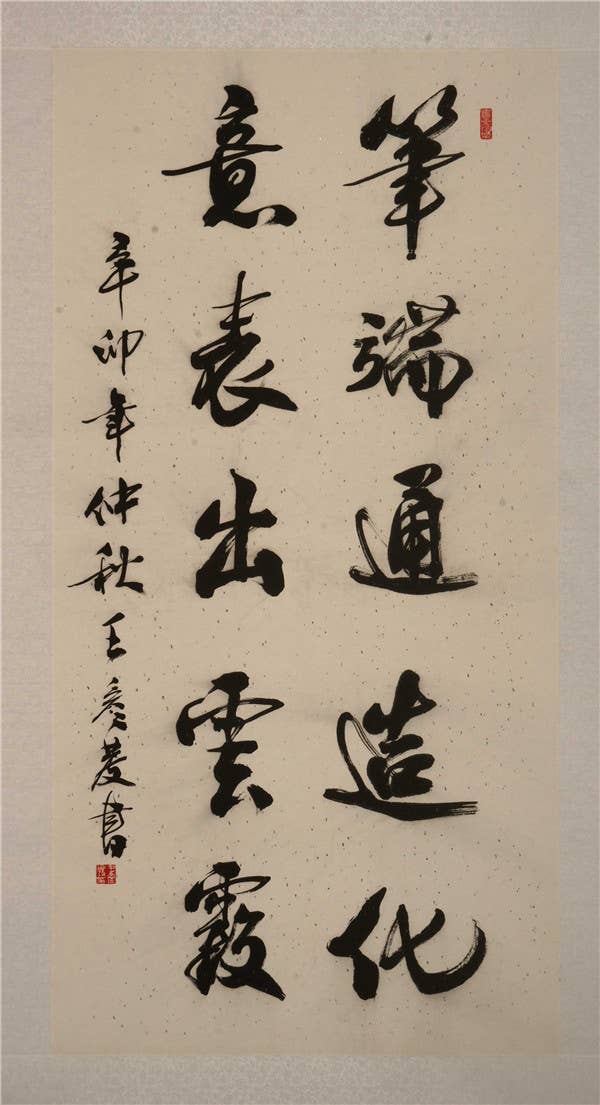 筆端通造化
意表出雲霞
辛卯年仲秋王 書